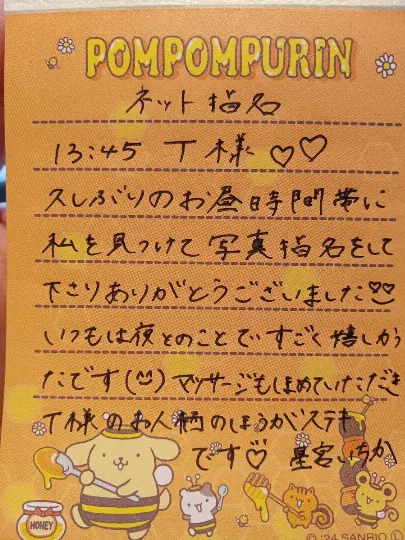 POMPOMPURIN
ネット指名
13:45 T様♡♡
久しぶりのお昼時間帯に
私を見つけて写真指名をして
下さりありがとうございました
いつもは夜とのことですごく嬉しかっ
たです(^^) マッサージもほめていただき
T様のお人柄のほうがステキ
です♡ 星宮いちか
HONEY
© '24 SANRIO Ⓛ